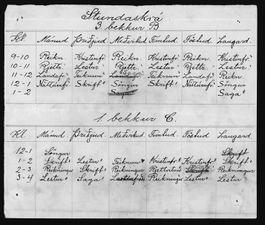 Stundaskrá
3. bekkur B
Kl. Mánud Þriðjud Miðvikud Fimtud Föstud Laugard
9-10 Reikn Kristinfr Reikn Kristinfr Reikn
10-11 Rjettr Lestur Rjettr Lestur Lestur
11-12 Landafr Teiknun Landafr Reikn
12-1 Náttúrufr Skrift Skrift Söngur
1-2 Söngur Saga
1. bekkur C.
Kl. Mánud Þriðjud Miðvikud Fimtud Föstud Laugard
12-1 Söngur Skrift
1-2 Skrift Lestur Teiknun Kristinfr Kristinfr Skrift
2-3 Reikningur Skrift Reikningur Rjettritun Reikningur
3-4 Lestur Saga Reikningur Lestur Lestur